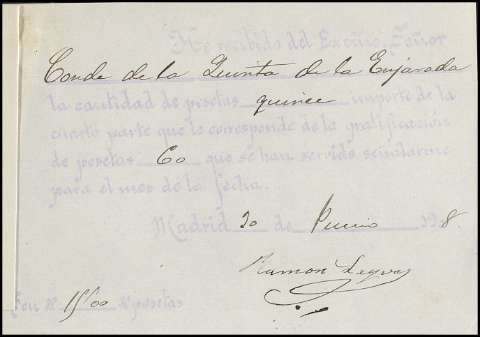 He recibido del Excmo. Señor
Conde de la Quinta de la Enjarada
la cantidad de pesetas quince importe de la
cuarta parte que le corresponde de la gratificación
de pesetas 60 que se han servido señalarme
para el mes de la fecha.
Madrid 30 de Junio 19 8.
Ramon
Son # 15'00 # pesetas